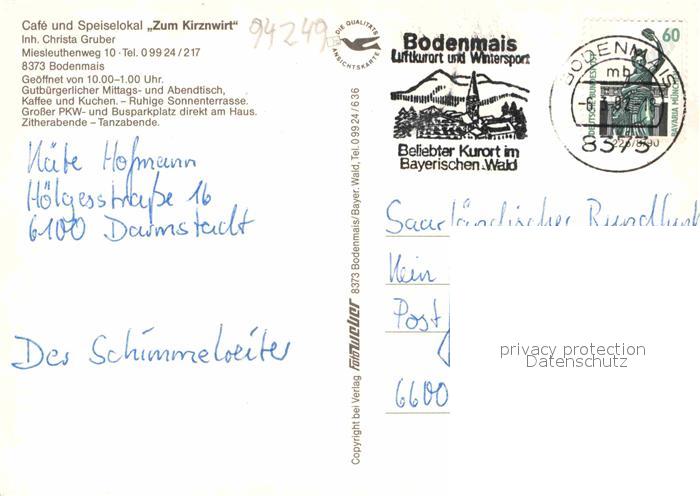 Café und Speiselokal „Zum Kirznwirt“
Inh. Christa Gruber
Miesleuthenweg 10 · Tel. 0 99 24 / 217
8373 Bodenmais
Geöffnet von 10.00–1.00 Uhr.
Gutbürgerlicher Mittags- und Abendtisch,
Kaffee und Kuchen. – Ruhige Sonnenterrasse.
Großer PKW- und Busparkplatz direkt am Haus.
Zitherabende – Tanzabende.
94249
Käte Hofmann
Hölgesstraße 16
6100 Darmstadt
Der Schimmelreiter
DIE QUALITÄTS
ANSICHTSKARTE
Copyright bei Verlag foto weber 8373 Bodenmais/Bayer. Wald, Tel. 0 99 24 / 6 36
Bodenmais
Luftkurort und Wintersport
Beliebter Kurort im
Bayerischen Wald
60
DEUTSCHE BUNDESPOST
BAVARIA MÜNCHEN
BODENMAIS
mb
8373
Saarländischer Rundfunk
Kein
Post
6600
privacy protection
Datenschutz